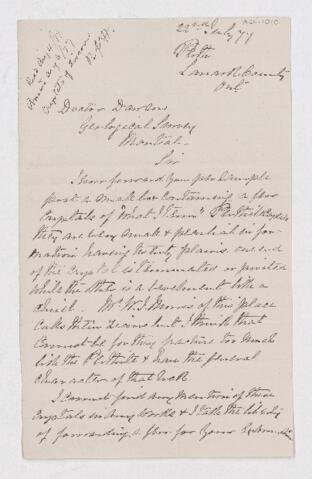 22nd July 77
Perth
Lanark County
Ont
Doctor Dawson
Geological Survey
Montreal
Sir
I now forward you per sample
post a small box containing a few
Crystals of "what I term" Perthite
they are very small & peculiar in for
mation having twenty plains one end
of the Crystal is terminated or pointed
while the other is a bevelment like a
chisel. Mr W. J. Morris of this place
calls them zircons but I think that
cannot be for they partake too much
like the Perthite & have the general
character of that rock
I cannot find any mention of these
Crystals in any works & I take the liberty
of forwarding a few for your